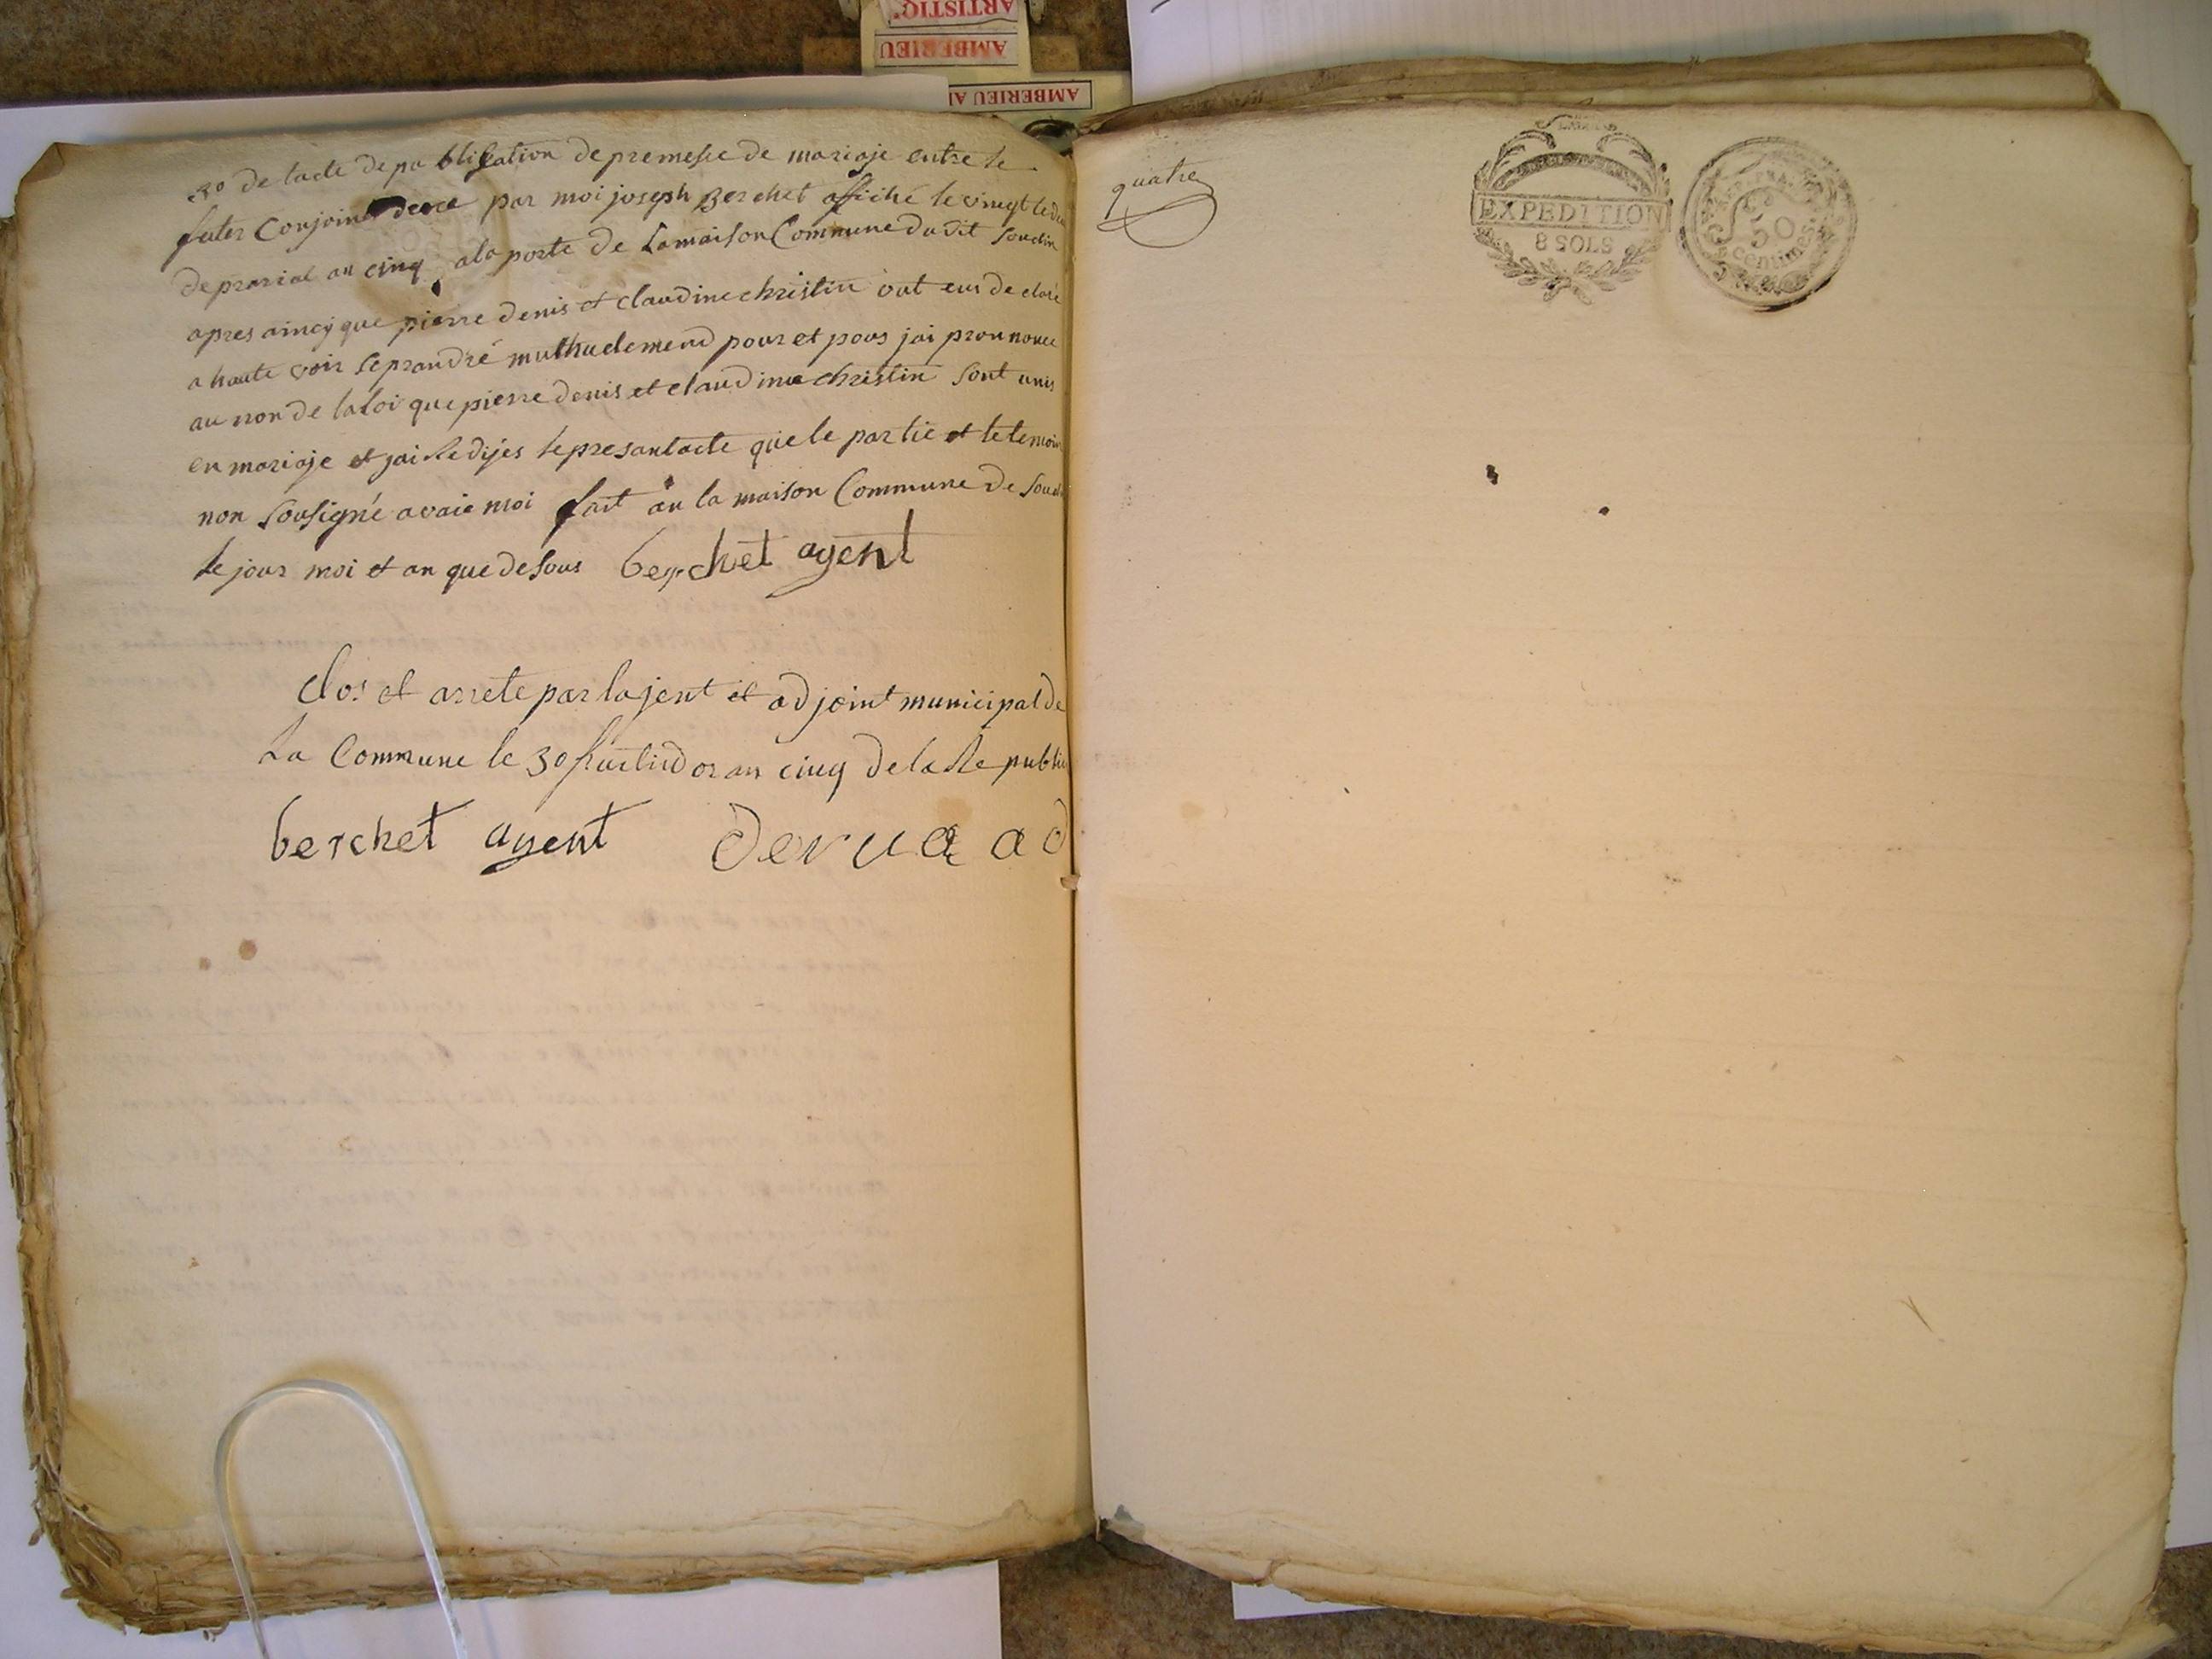 ARTISTIQ'
AMBERIEU
AMBERIEU
3o de lacte de publication de premesse de mariaje entre le
futes Conjoint par moi joseph Berchet affiché le vineyt
de prarial an cinq a la porte de Lamaison Commune dudit Soudin
apres aincy que pierre denis et claudine christin out eus de claré
a haute voix se prandré muthuelemend pour et pous jai pronnonce
au non de la Loi que pierre denis et claudine christin Sont unis
en mariaje et jai Redijés le presantacte que le partie et le temoin
non Sousigné avaie moi fait au la maison Commune de
le jour moi et an que desous berchet agent
Clos et arrete par lajent et adjoint municipal de
La Commune le 30 fructidor an cinq de la Re publi
berchet agent derua ad
quatre
EXPEDITION
8 SOLS
REP. FRA.
50
centimes.